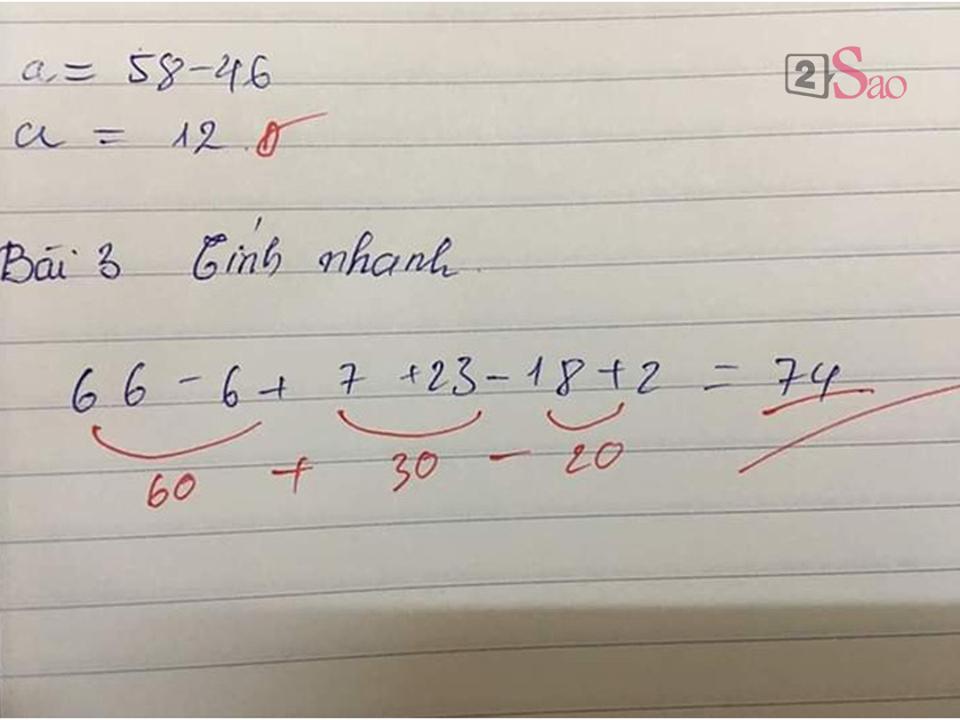 a = 58-46
2Sao
a = 12.
Bài 3 Tính nhanh.
66 - 6 + 7 + 23 - 18 + 2 = 74
60 + 30 - 20